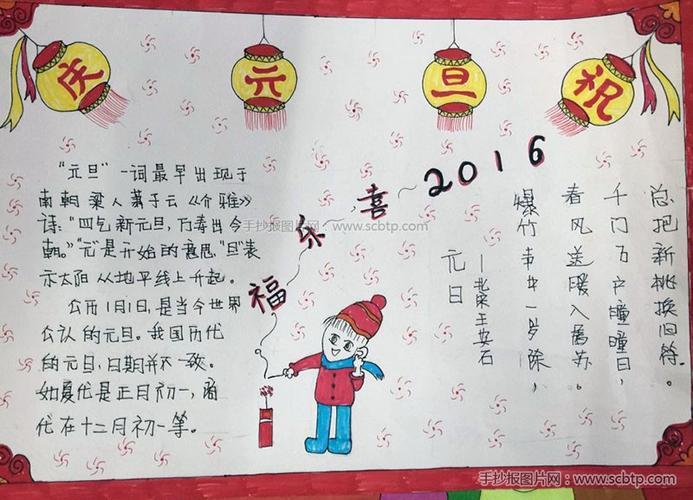 庆 元 旦 祝
"元旦"一词最早出现于
南朝梁人萧子云《介雅》
诗:"四气新元旦,万寿出今
朝。""元"是开始的意思,"旦"表
示太阳从地平线上升起。
公历1月1日,是当今世界
公认的元旦。我国历代
的元旦,日期并不一致。
如夏代是正月初一,商
代在十二月初一等。
福乐喜2016
元日
—北宋王安石
爆竹声中一岁除,
春风送暖入屠苏。
千门万户瞳瞳日,
总把新桃换旧符。
手抄报图片网:www.scbtp.com
手抄报图片网:www.scbtp.com